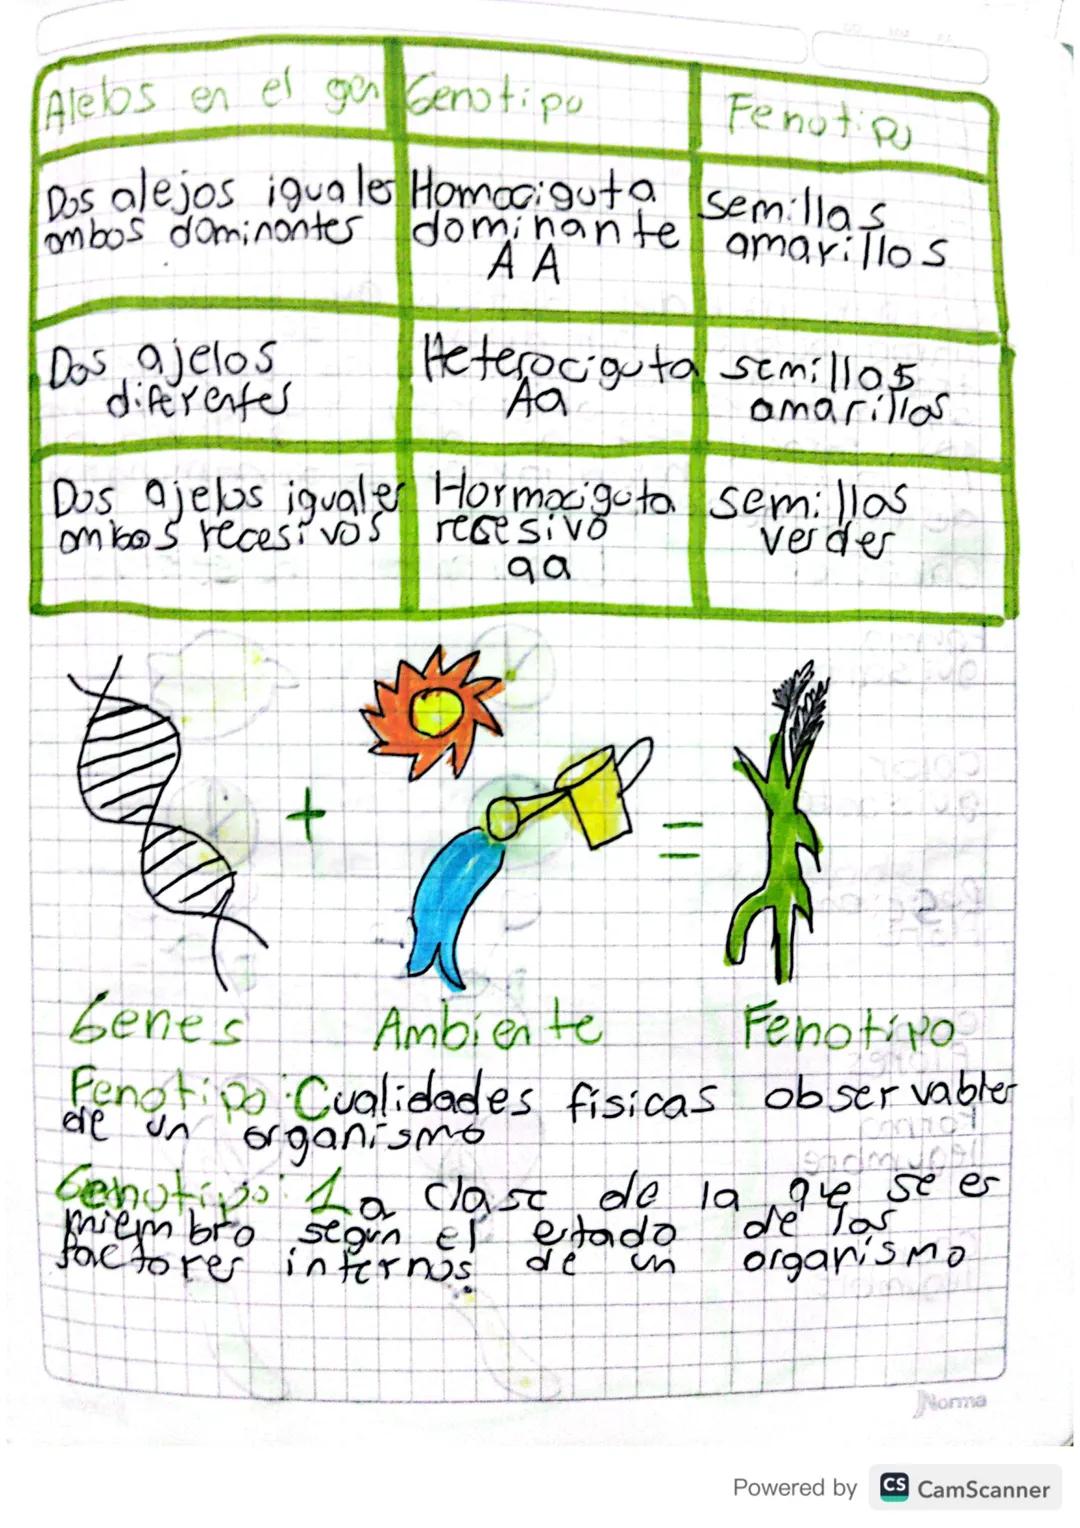 Alelos en el gen Genotipo Fenotipo
Dos alejos iguales Homociguta semillas
ambos dominantes dominante amarillos
A A
Dos ajelos Heterociguta semillos
diferentes Aa amarillos
Dos ajelos iguales Hormociguta semillos
ambos recesivos resesivo verdes
aa
+ =
Genes Ambiente Fenotipo
Fenotipo: Cualidades físicas observables
de un organismo
Genotipo: La clase de la que se es
miembro según el estado de los
factores internos de un organismo
Norma
Powered by CS CamScanner